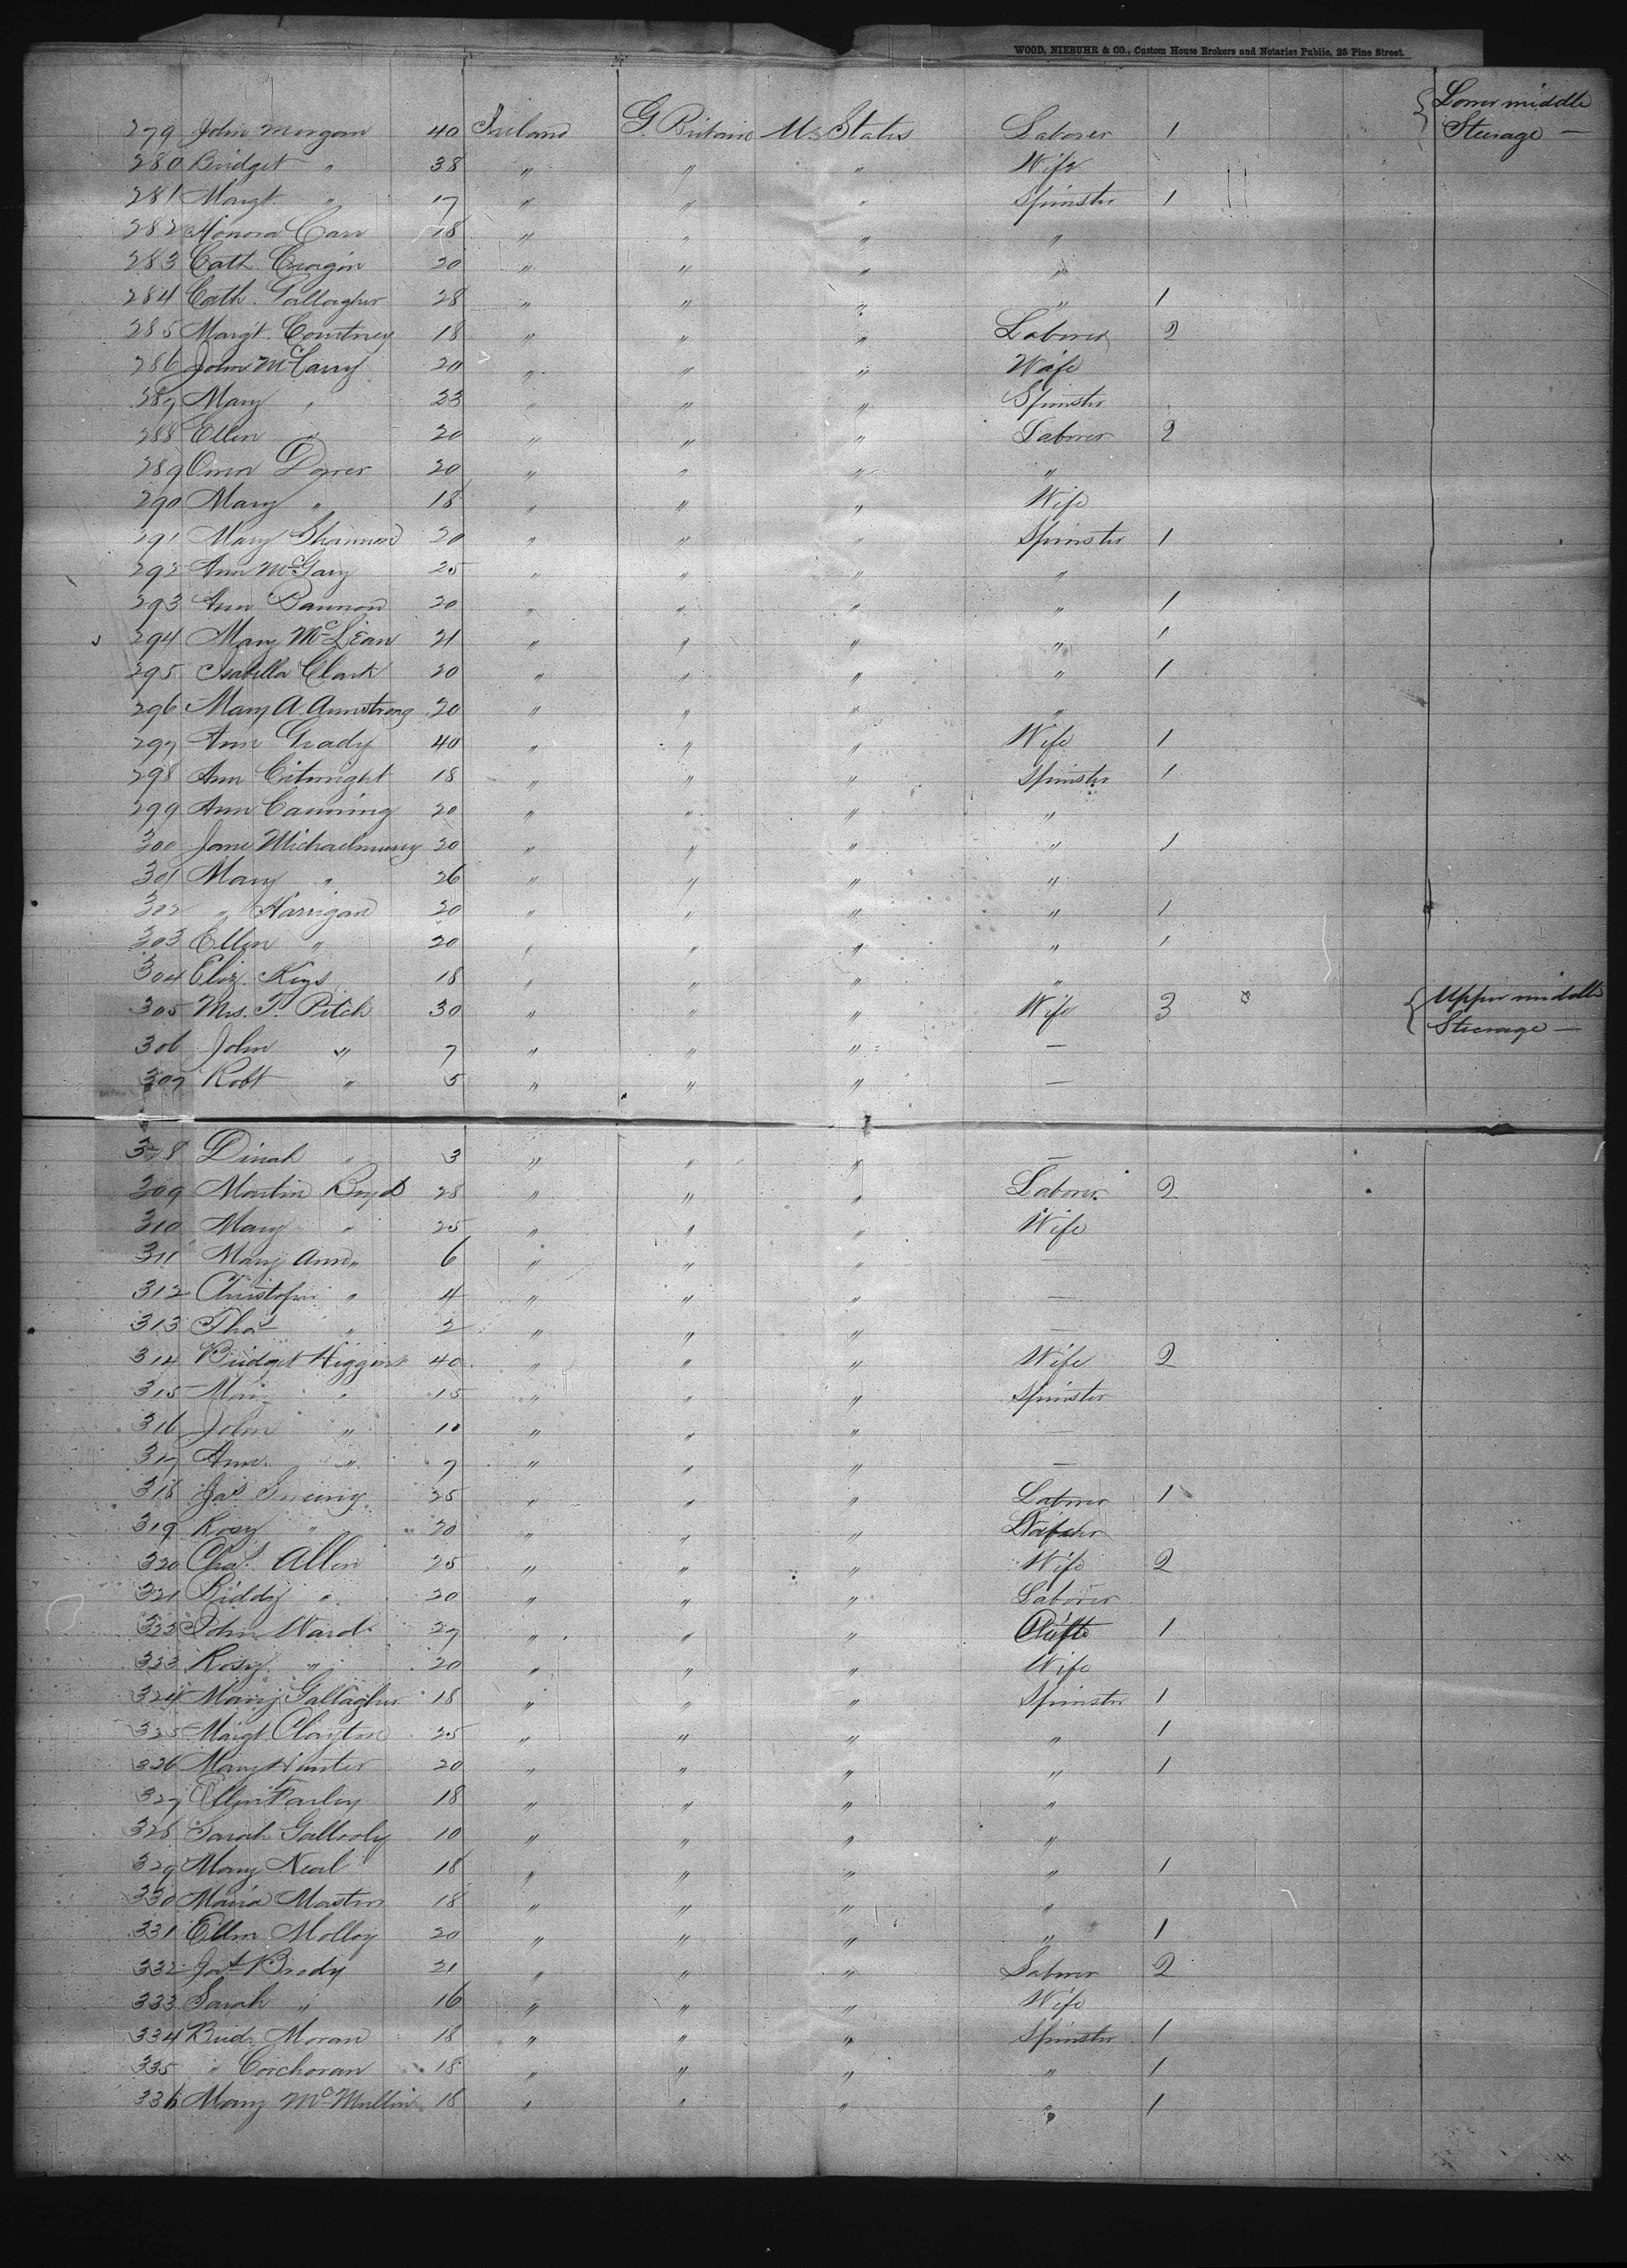 WOOD, NIEBUHR & CO., Custom House Brokers and Notaries Public, 25 Pine Street.
279 John Morgan 40 Ireland G. Britain U. States Laborer 1 { Lower middle Steerage —
280 Bridget " 38 " " " Wife
281 Margt. " 17 " " " Spinster 1
282 Honora Carr 18 " " " "
283 Cath. 20 " " " "
284 Cath. Gallagher 28 " " " " 1
285 Margt. Courtney 18 " " " Laborer 2
286 John 20 " " " Wife
287 Mary " 23 " " " Spinster
288 Ellen " 20 " " " Laborer 2
289 Owen 20 " " " "
290 Mary " 18 " " " Wife
291 Mary Shannon 20 " " " Spinster 1
292 Ann McGary 25 " " " "
293 Ann Bannon 20 " " " " 1
294 Mary McLean 21 " " " " 1
295 Isabella Clark 20 " " " " 1
296 Mary A. Armstrong 20 " " " "
297 Ann Grady 40 " " " Wife 1
298 Ann 18 " " " Spinster 1
299 Ann Canning 20 " " " "
300 Jane 20 " " " " 1
301 Mary " 26 " " " "
302 " Harrigan 20 " " " " 1
303 Ellen " 20 " " " " 1
304 Eliz. Keys 18 " " " "
305 Mrs. T. Pitch 30 " " " Wife 3 { Upper middle Steerage —
306 John " 7 " " " —
307 Robt " 5 " " " —
308 Dinah " 3 " " " —
309 Martin Boyd 28 " " " Laborer 2
310 Mary " 25 " " " Wife
311 Mary Ann " 6 " " " —
312 " 4 " " " —
313 Thos " 2 " " " —
314 Bridget Higgins 40 " " " Wife 2
315 Mary " 15 " " " Spinster
316 John " 10 " " " —
317 Ann " 7 " " " —
318 Jas 25 " " " Laborer 1
319 Rosy " 20 " " "
320 Chas. Allen 25 " " " Wife 2
321 Biddy " 20 " " " Laborer
322 John Ward 27 " " " 1
323 Rosy " 20 " " " Wife
324 Mary Gallagher 18 " " " Spinster 1
325 Margt. Clayton 25 " " " " 1
326 Mary Hunter 20 " " " " 1
327 Ellen Farley 18 " " " "
328 Sarah Gallooly 10 " " " "
329 Mary Neal 18 " " " " 1
330 Maria Martin 18 " " " "
331 Ellen Molloy 20 " " " " 1
332 Brody 21 " " " Laborer 2
333 Sarah " 16 " " " Wife
334 Brid. Moran 18 " " " Spinster 1
335 " Corchoran 18 " " " " 1
336 Mary McMullin 18 " " " " 1